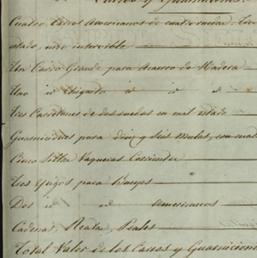 Carros y Guarniciones
Cuatro Carros Americanos de cuatro ruedas
estado, uno inservible
Un Carro Grande para Acarreo de Madera
Uno id Chiquito id id
Tres Carretones de dos ruedas en mal estado
Guarniciones para diez y seis mulas, con
Cinco Sillas Vaqueras Corrientes
Tres Yugos para Bueyes
Dos id id Americanos
Cadenas, Reatas, Reales
Total Valor de los Carros y Guarnicione